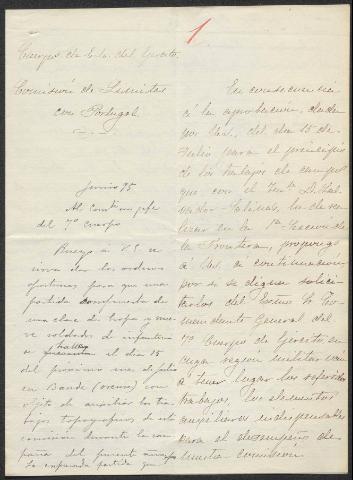 1
Cuerpo de E.M. del Ejército
Comisión de Límites
con Portugal
Junio 95
Al Comte en jefe
del 7º Cuerpo
Ruego á V.E. se
sirva dar las órdenes
oportunas para que una
partida compuesta de
una clase de tropa y nue-
ve soldados de infantería
se halle el dia 15
del próximo mes de julio
en Bande (orense) con
objeto de auxiliar los tra-
bajos topográficos de esta
comisión durante la cam-
paña del presente
La expresada partida que
En consecuencia
á la aprobación, dada
por V.E. del dia 15 de
Julio para el principio
de los trabajos de campo
que con el Tente D. Sal-
vador Salinas, he de rea-
lizar en la 1ª Sección de
la frontera, propongo
á V.E. á continuación
por si se digna solici-
tarlos del Excmo Sr Co-
mandante General del
7º Cuerpo de Ejército, en
cuya región militar van
á tener lugar los referidos
trabajos, los elementos
auxiliares indispensables
para el desempeño de
nuestra comisión